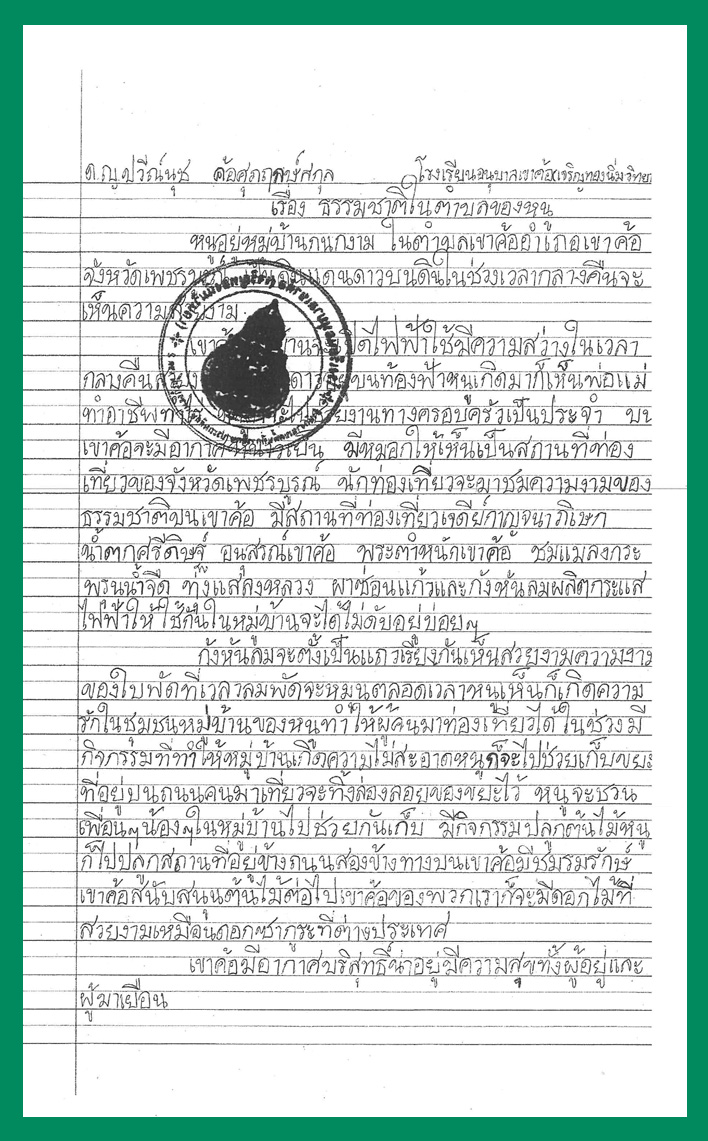 ด.ญ.ปวีณ์นุช ด้อศุภฤกษ์สกุล โรงเรียนอนุบาลเขาค้อ(เจริญทองนิ่มวิทยา
เรื่อง ธรรมชาติในตำบลของหนู
หนูอยู่หมู่บ้านกนกงาม ในตำบลเขาค้ออำเภอเขาค้อ
จังหวัดเพชรบูรณ์ ดินแดนดาวบนดินในช่วงเวลากลางคืนจะ
เห็นความสวยงาม
เขาค้อ เปิดไฟฟ้าใช้มีความสว่างในเวลา
กลางคืน บนท้องฟ้าหนูเกิดมาก็เห็นพ่อแม่
ทำอาชีพ งานทางครอบครัวเป็นประจำ บน
เขาค้อจะมีอากาศหนาวเย็น มีหมอกให้เห็นเป็นสถานที่ท่อง
เที่ยวของจังหวัดเพชรบูรณ์ นักท่องเที่ยวจะมาชมความงามของ
ธรรมชาติบนเขาค้อ มีสถานที่ท่องเที่ยวเจดีย์กาญจนาภิเษก
น้ำตกศรีดิษฐ์ อนุสรณ์เขาค้อ พระตำหนักเขาค้อ ชมแมลงกระ
พรุนน้ำจืด ทุ่งแสลงหลวง ผาซ่อนแก้วและกังหันลมผลิตกระแส
ไฟฟ้าให้ใช้กันในหมู่บ้านจะได้ไม่ดับอยู่บ่อยๆ
กังหันลมจะตั้งเป็นแถวเรียงกันเห็นสวยงามความงาม
ของใบพัดที่เวลาลมพัดจะหมุนตลอดเวลาหนูเห็นก็เกิดความ
รักในชุมชนหมู่บ้านของหนูทำให้ผู้คนมาท่องเที่ยวได้ในช่วงมี
กิจกรรมที่ทำให้หมู่บ้านเกิดความไม่สะอาดหนูก็จะไปช่วยเก็บขยะ
ที่อยู่บนถนนคนมาเที่ยวจะทิ้งล่องลอยของขยะไว้ หนูจะชวน
เพื่อนๆน้องๆในหมู่บ้านไปช่วยกันเก็บ มีกิจกรรมปลูกต้นไม้หนู
ก็ไปปลูกสถานที่อยู่ข้างถนนสองข้างทางบนเขาค้อมีชมรมรักษ์
เขาค้อสนับสนุนต้นไม้ต่อไปเขาค้อของพวกเราก็จะมีดอกไม้ที่
สวยงามเหมือนดอกซากุระที่ต่างประเทศ
เขาค้อมีอากาศบริสุทธิ์น่าอยู่มีความสุขทั้งผู้อยู่และ
ผู้มาเยือน